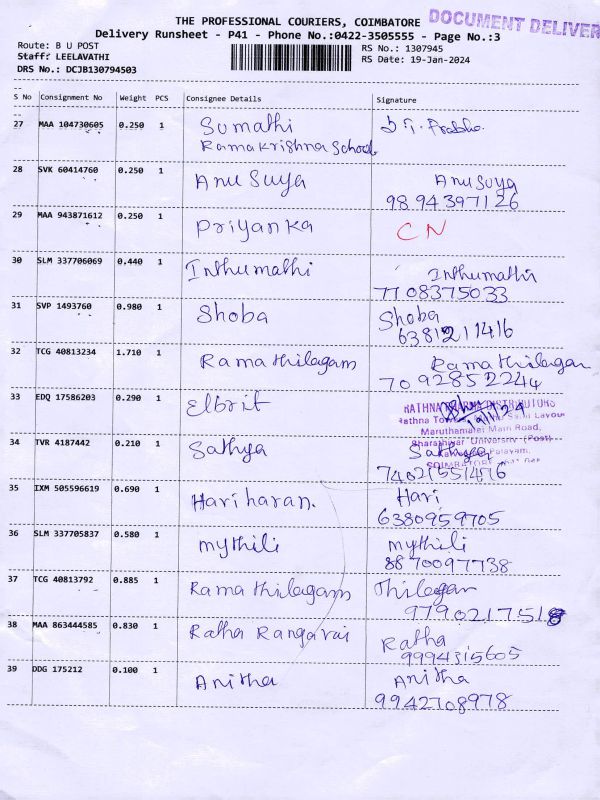 THE PROFESSIONAL COURIERS, COIMBATORE
DOCUMENT DELIVER
Delivery Runsheet - P41 - Phone No.:0422-3505555 - Page No.:3
Route: B U POST
RS No.: 1307945
Staff: LEELAVATHI
RS Date: 19-Jan-2024
DRS No.: DCJB130794503
S No Consignment No Weight PCS Consignee Details Signature
27 MAA 104730605 0.250 1 Sumathi Prabha.
Ramakrishna School
28 SVK 60414760 0.250 1 Anusuya Anusuya
9894397126
29 MAA 943871612 0.250 1 Priyanka CN
30 SLM 337706069 0.440 1 Inthumathi Inthumathi
7708375033
31 SVP 1493760 0.980 1 Shoba Shoba
6381211416
32 TCG 40813234 1.710 1 Ramathilagam Ramathilagam
7092852244
33 EDQ 17586203 0.290 1 Elbrit RATHNA DISTRIBUTORS
19/1/24
Rathna Layout
Maruthamalai Main Road,
Bharathiyar University (Post)
34 TVR 4187442 0.210 1 Sathya Sathya
Palayam,
COIMBATORE
7402551476
35 IXM 505596619 0.690 1 Hariharan. Hari
6380959705
36 SLM 337705837 0.580 1 mythili mythili
8870097738
37 TCG 40813792 0.885 1 Ramathilagam Thilagam
9790217518
38 MAA 863444585 0.830 1 Ratha Rangarai Ratha
9994315605
39 DDG 175212 0.100 1 Anitha Anitha
9942708978